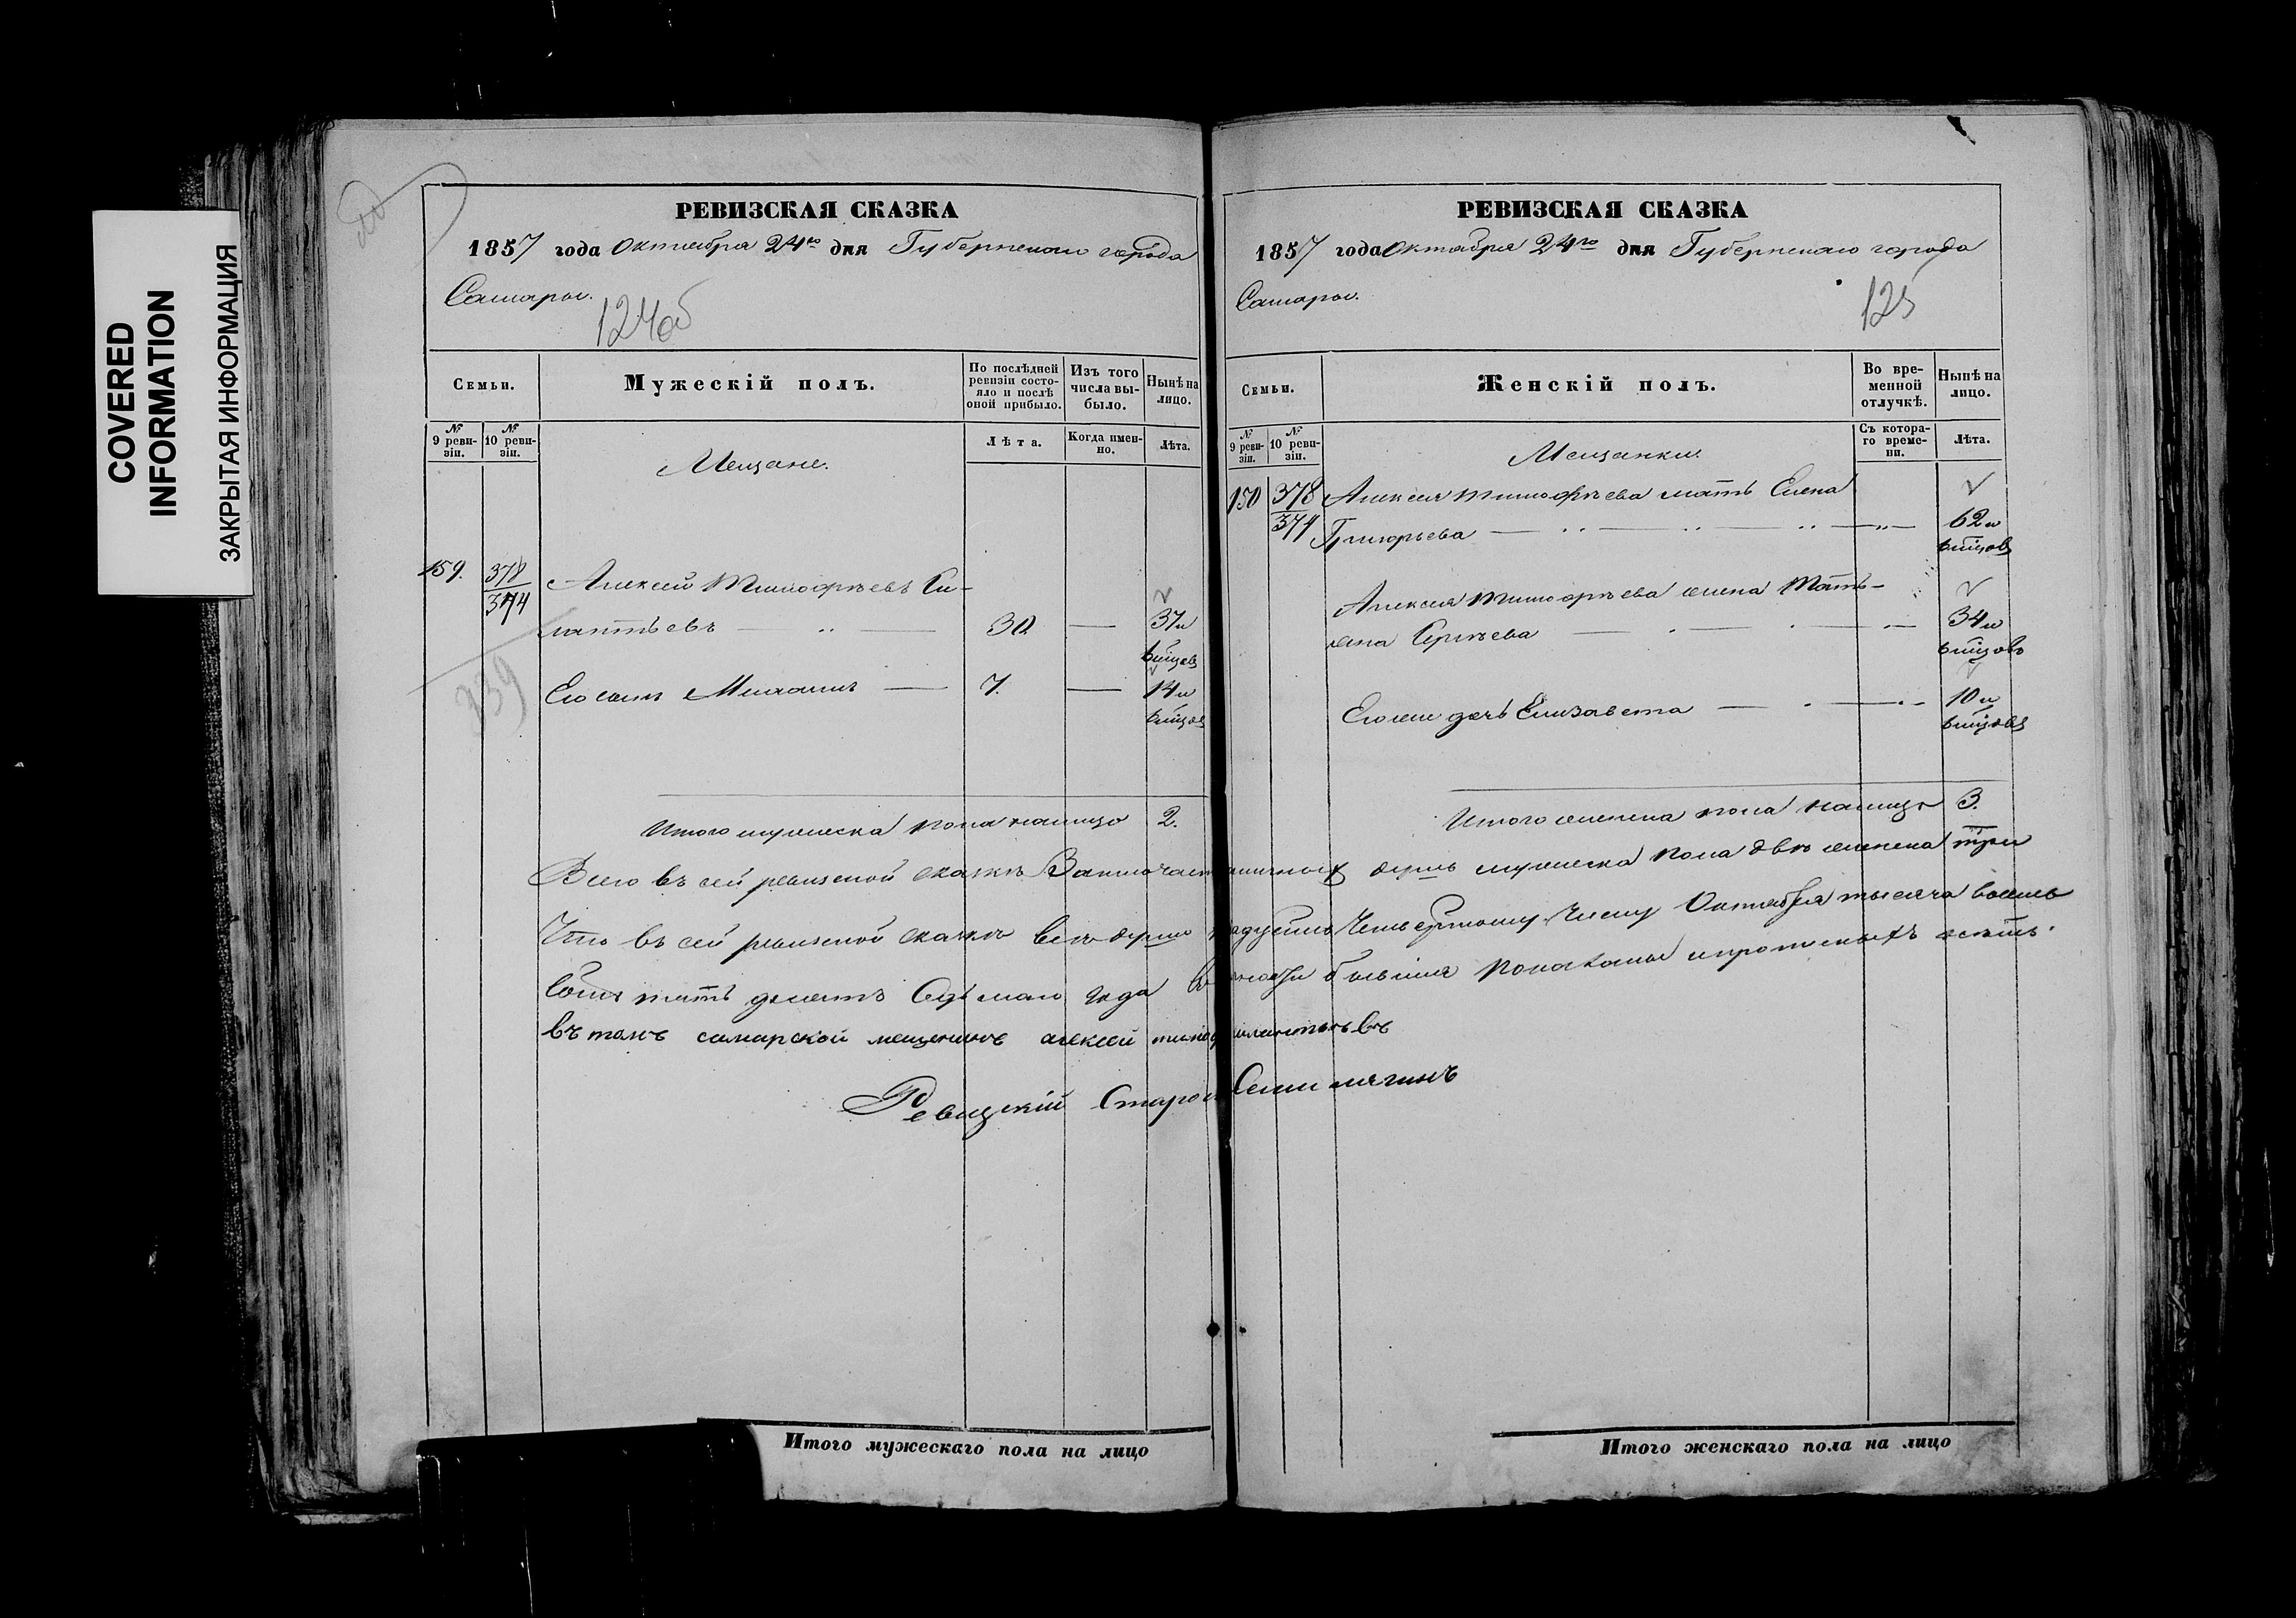 COVERED
INFORMATION
ЗАКРЫТАЯ ИНФОРМАЦИЯ
РЕВИЗСКАЯ СКАЗКА
1857 года Октября 24го дня Губернскаго города
Самары.
124об
Семьи.
Мужескій полъ.
По послѣдней ревизіи состояло и послѣ оной прибыло.
Изъ того числа выбыло.
Нынѣ на лицо.
№ 9 ревизіи.
№ 10 ревизіи.
Мещане.
Лѣта.
Когда именно.
Лѣта.
159.
378
374
Алексей Тимофѣевъ
30
37 и
Его сынъ Михаилъ
7.
14 и
339
Итого мужеска пола налицо 2.
РЕВИЗСКАЯ СКАЗКА
1857 года Октября 24го дня Губернскаго города
Самары.
125
Семьи.
Женскій полъ.
Во временной отлучкѣ.
Нынѣ на лицо.
№ 9 ревизіи.
№ 10 ревизіи.
Мещанки.
Съ котораго времени.
Лѣта.
150
378
374
Алексея Тимофѣева мать Елена
Григорьева
62 и
Алексея Тимофѣева жена Тать-
яна Сергѣева
34 и
Его же дочь Елизавета
10 и
Итого женска пола налицо 3.
Всего въ сей ревизской сказкѣ душъ мужеска пола двѣ женска три
Что въ сей ревизской сказкѣ всѣ души Октября тысяча восемь
сотъ пятьдесятъ Седьмаго года показаны и прописныхъ нетъ.
въ томъ самарской мещенинъ алексей
Ревизскій Староста
Итого мужескаго пола на лицо
Итого женскаго пола на лицо